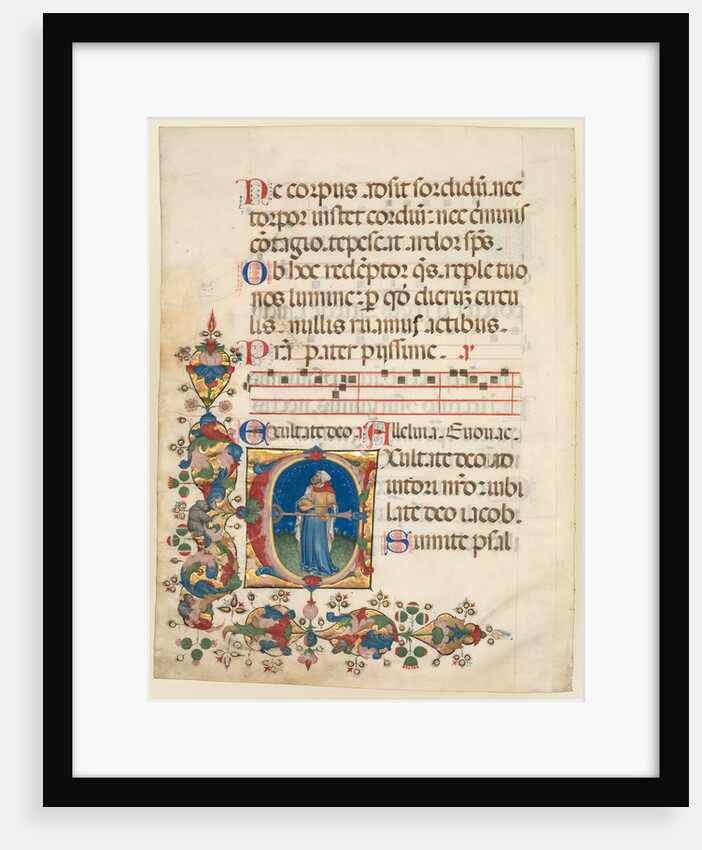 Ne corpus adsit sordidū. nec
torpor instet cordiū: nec criminis
cōtagio. tepescat ardor sp̄s.
Ob hoc redēptor q̄s. reple tuo
nos lumine: p qd dieruʒ circu
lis. nullis ruamus actibus.
Prā pater pijssime.
Exultate deo. a Alleluia. Euouae.
Exultate deo ad
iutori nr̄o: iubi
late deo iacob.
Sumite psal